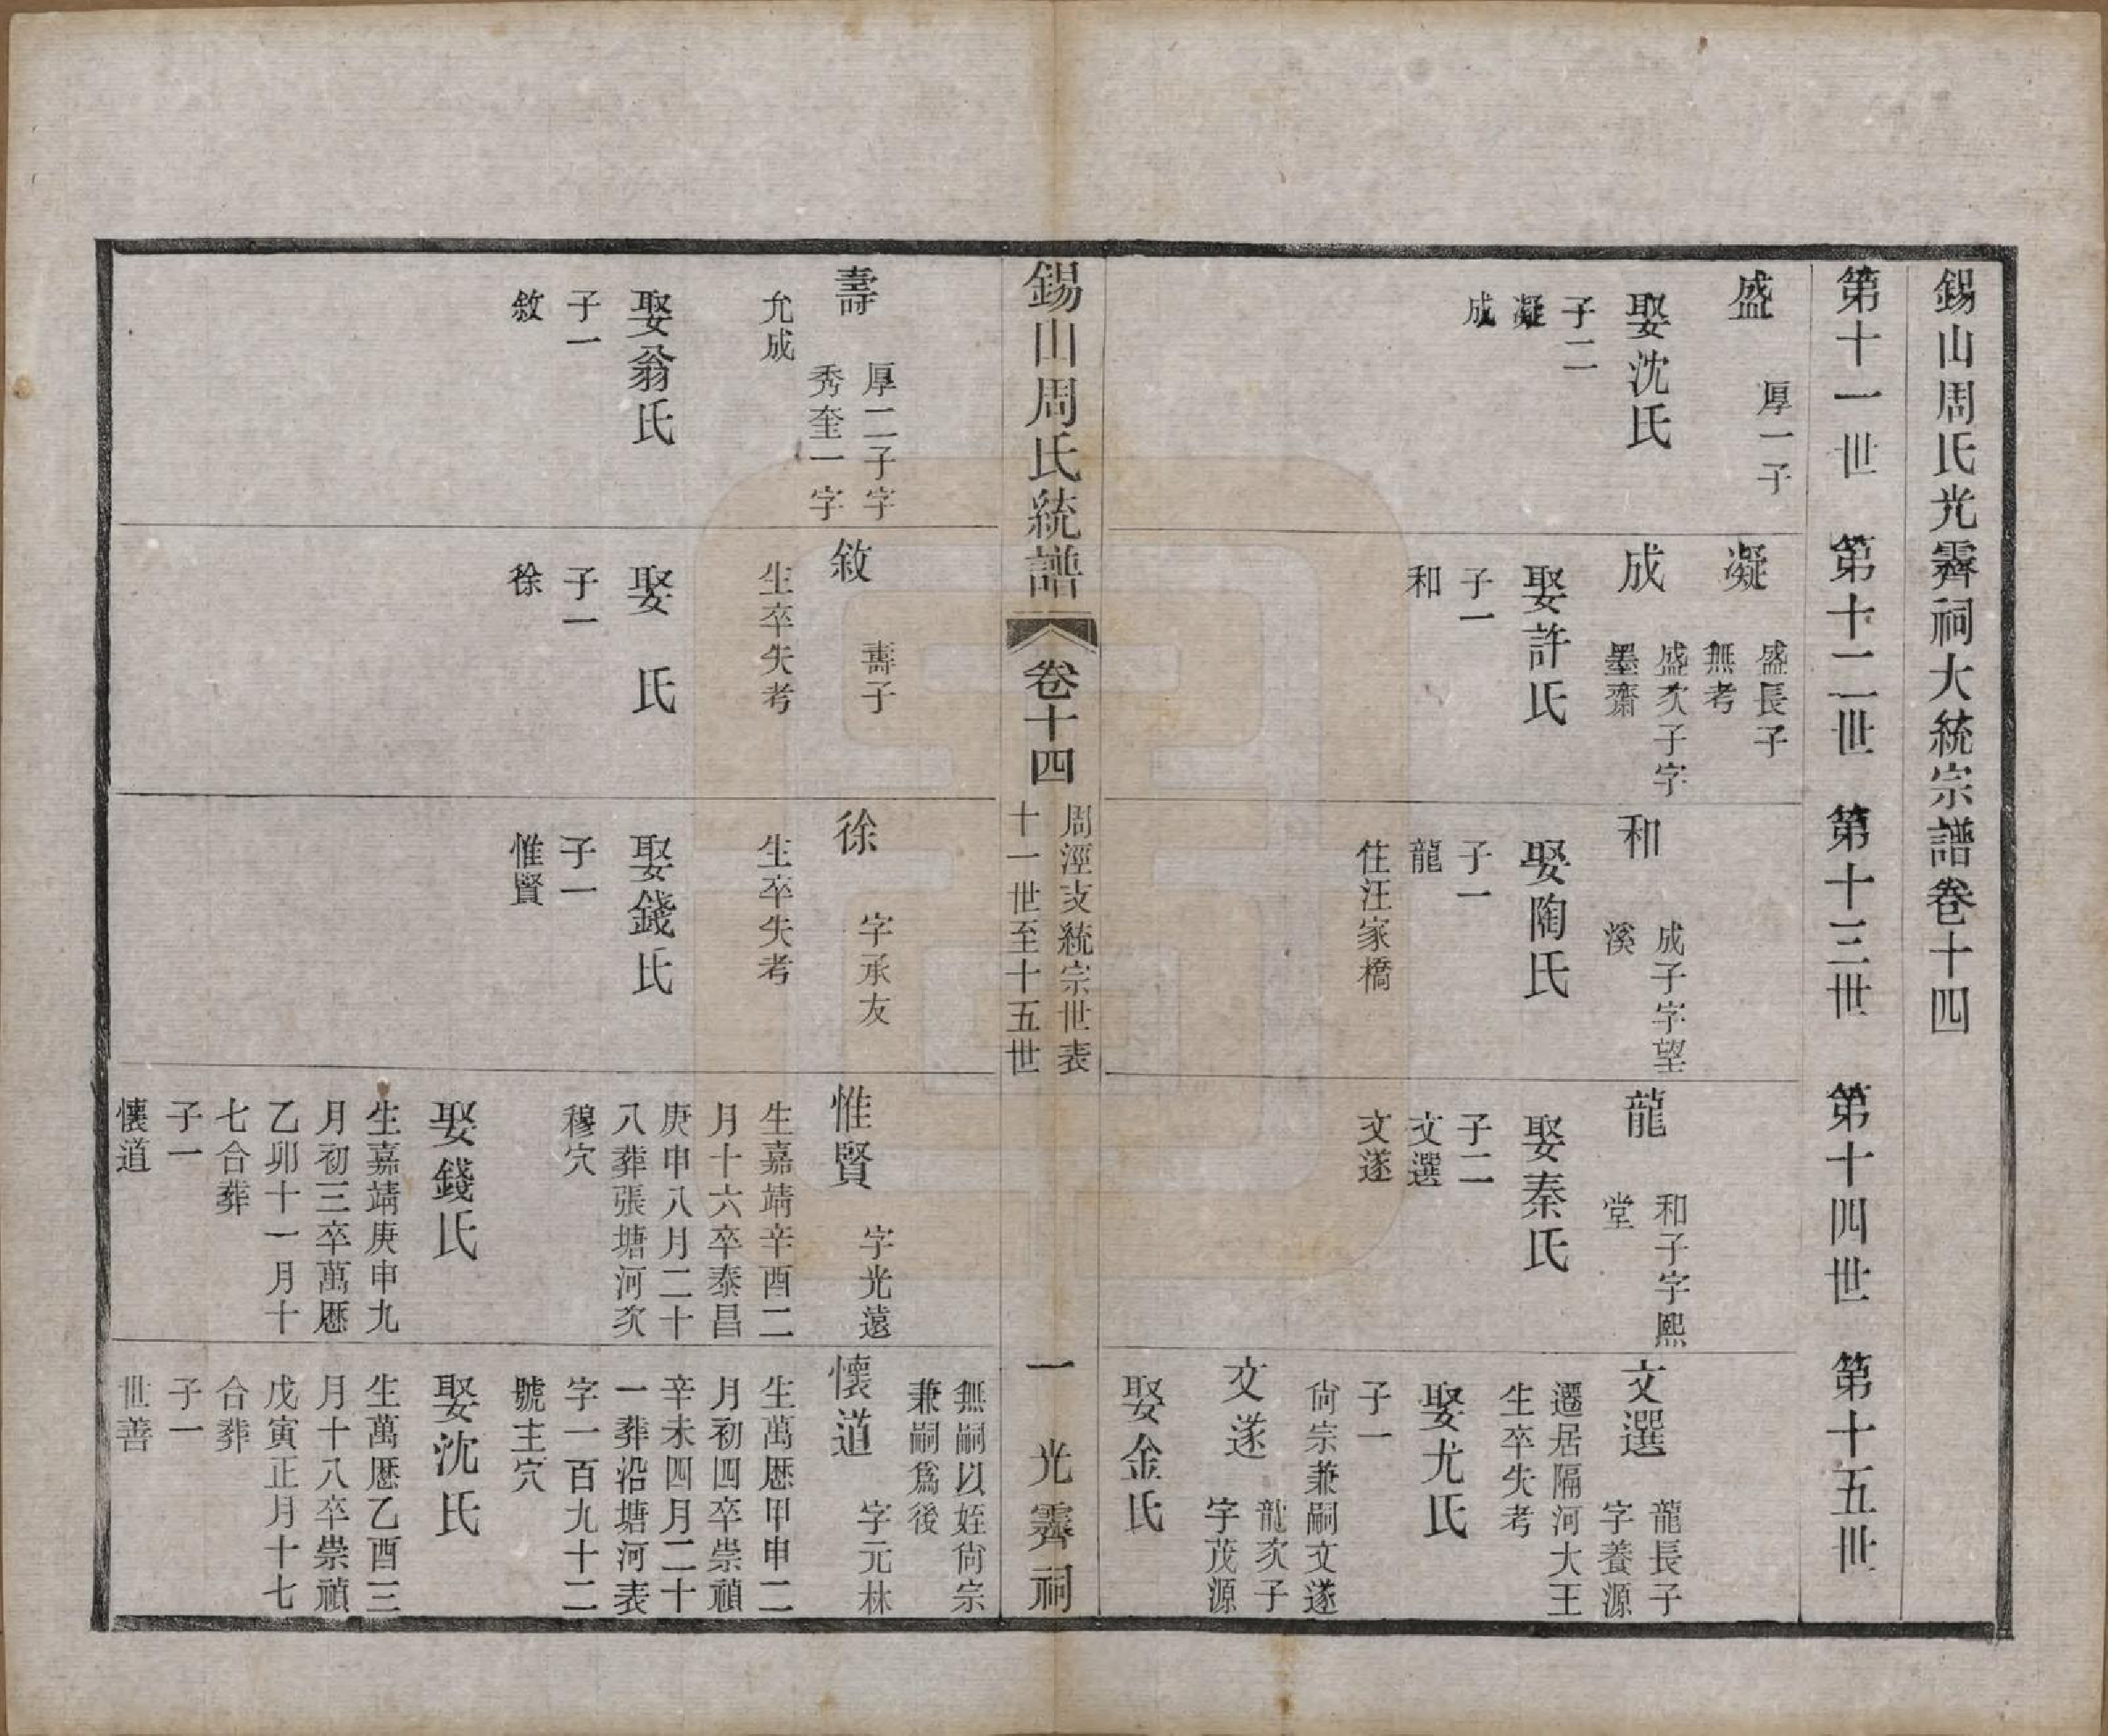 錫山周氏光霽祠大統宗譜卷十四
第十一世
第十二世
第十三世
第十四世
第十五世
盛
厚一子
娶沈氏
子二
凝
成
凝
盛長子
無考
成
盛次子字
墨齋
娶許氏
子一
和
和
成子字望
溪
娶陶氏
子一
龍
住汪家橋
龍
和子字熙
堂
娶秦氏
子二
文選
文遂
文選
龍長子
字養源
遷居隔河大王
生卒失考
娶尤氏
子一
尙宗兼嗣文遂
文遂
龍次子
字茂源
娶金氏
錫山周氏統譜
卷十四
周涇支統宗世表
十一世至十五世
一
光霽祠
壽
厚二子字
秀奎一字
允成
娶翁氏
子一
敘
敘
壽子
生卒失考
娶 氏
子一
徐
徐
字承友
生卒失考
娶錢氏
子一
惟賢
惟賢
字光遠
生嘉靖辛酉二
月十六卒泰昌
庚申八月二十
八葬張塘河次
穆穴
娶錢氏
生嘉靖庚申九
月初三卒萬歷
乙卯十一月十
七合葬
子一
懷道
無嗣以姪尙宗
兼嗣爲後
懷道
字元林
生萬歷甲申二
月初四卒崇禎
辛未四月二十
一葬沿塘河表
字一百九十二
號主穴
娶沈氏
生萬歷乙酉三
月十八卒崇禎
戊寅正月十七
合葬
子一
世善